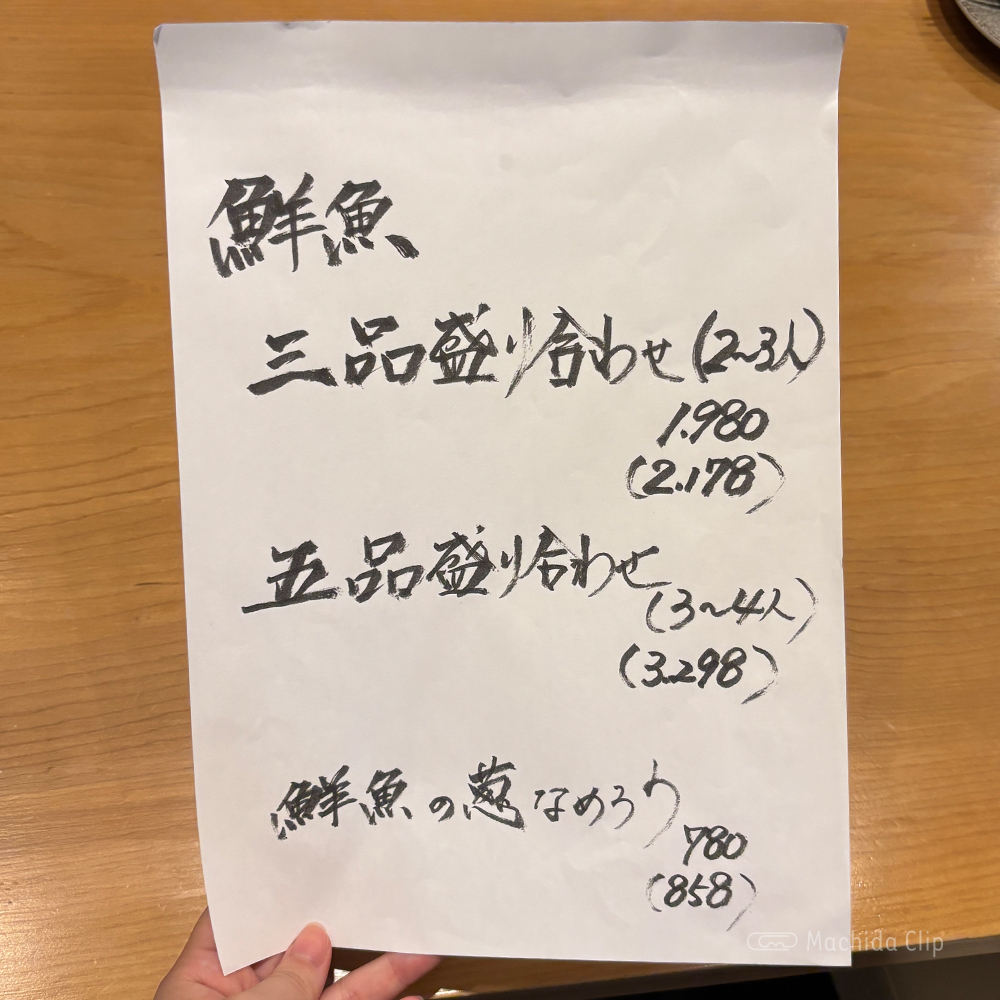 鮮魚
三品盛り合わせ(2~3人)
1.980
(2.178)
五品盛り合わせ
(3~4人)
(3.298)
鮮魚の葱なめろう
780
(858)
Machida Clip